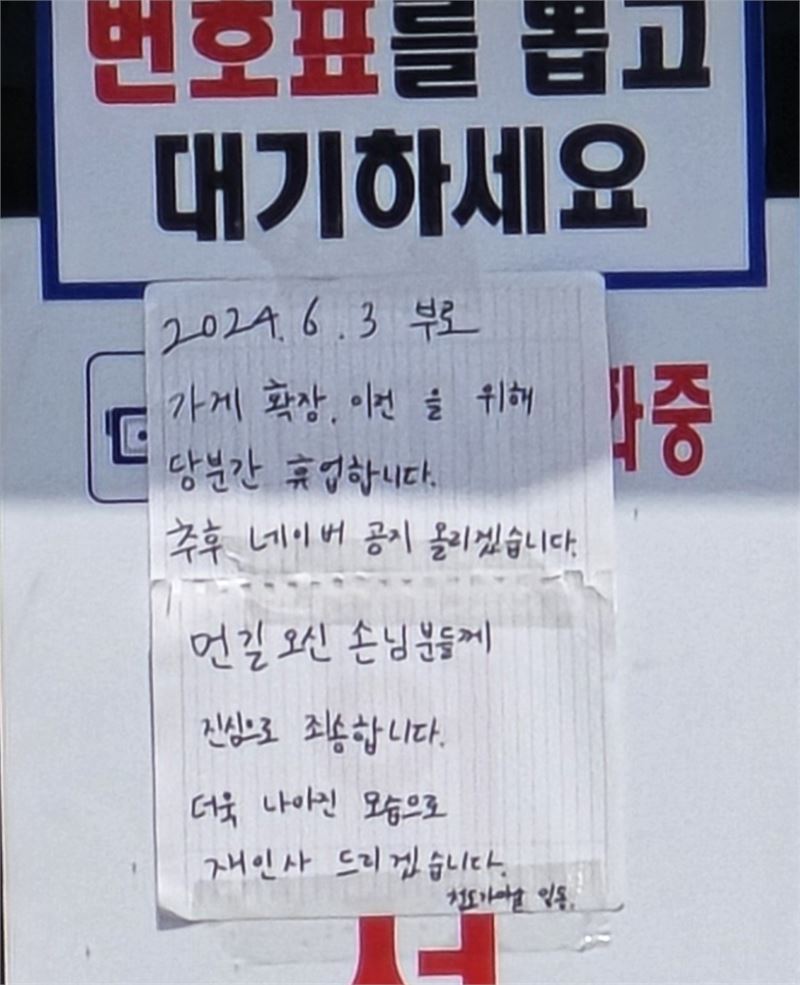 번호표를 뽑고
대기하세요
2024. 6. 3 부로
가게 확장, 이런 을 위해
당분간 휴업합니다.
추후 네이버 공지 올리겠습니다.
중
먼길 오신 손님분들께
진심으로 죄송합니다.
더욱 나아진 모습으로
재인사 드리겠습니다.
일동.